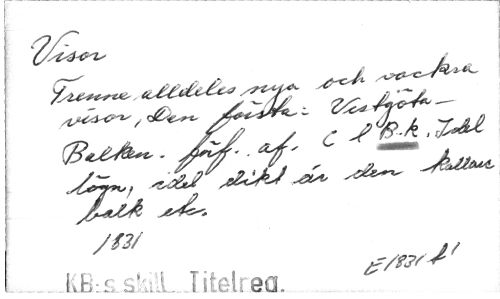 Visor
Trenne alldeles nya och vackra
visor, Den första: Vestgöta-
Balken. förf. af. C l B-k. Idel
lögn, idel dikt är den kallas
balk etc.
1831
E 1831 f1
KB:s skill. Titelreg.